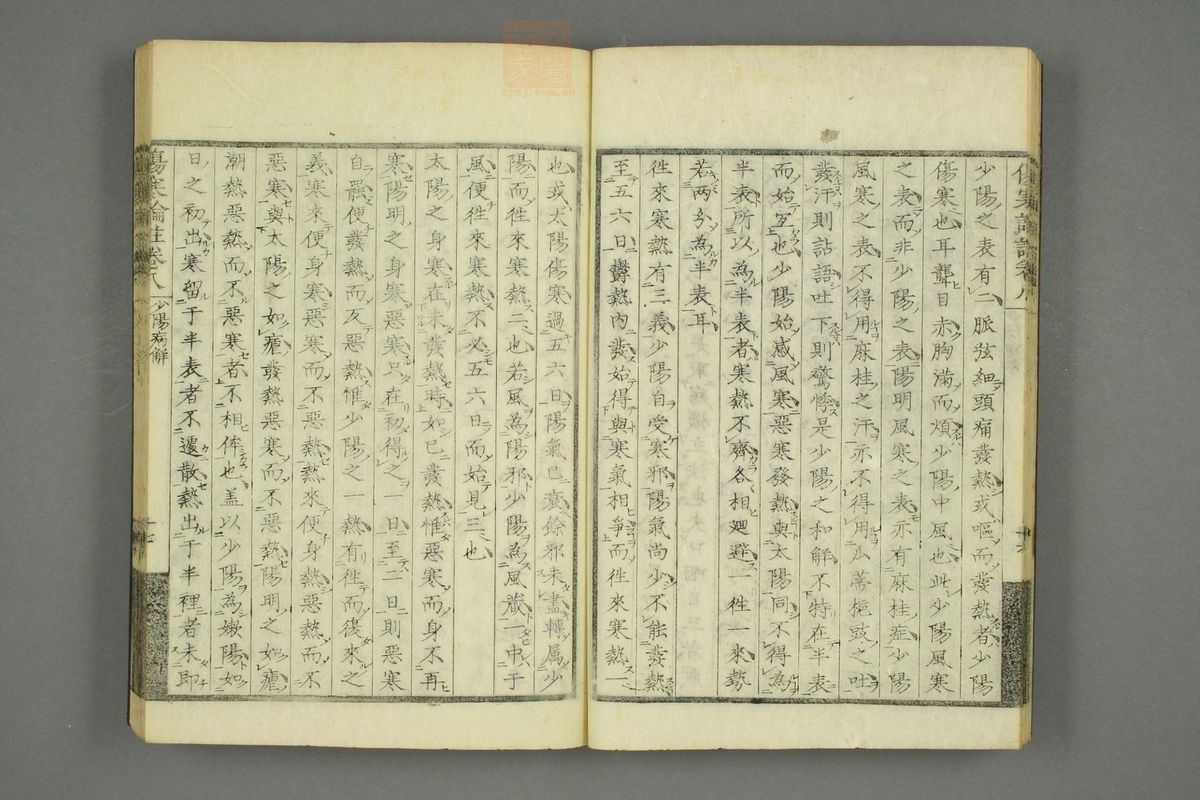 少陽之表有二脈弦細頭痛發熱或嘔而發熱者少陽
傷寒也耳聾目赤胸滿而煩少陽中風也此少陽風寒
之表而非少陽之表陽明風寒之表亦有麻桂症少陽
風寒之表不得用麻桂之汗亦不得用瓜蒂梔豉之吐
發汗則詀語吐下則驚悸是少陽之和解不特在半表
而始宜也少陽始感風寒惡寒發熱與太陽同不得為
半表所以為半表者寒熱不齊各相廻避一徃一來勢
若兩分為半表耳
徃來寒熱有三義少陽自受寒邪陽氣尚少不能發熱
至五六日欝熱內發始得與寒氣相爭而徃來寒熱一
也或太陽傷寒過五六日陽氣已衰餘邪未盡轉属少
陽而徃來寒熱二也若風為陽邪少陽為風藏一中于
風便徃來寒熱不必五六日而始見三也
太陽之身寒在未發熱時如已發熱惟惡寒而身不再
寒陽明之身寒只在初得之一日至二日則惡寒
自罷便發熱而反惡熱惟少陽之一熱有徃而復來之
義寒來便身寒惡寒而不惡熱熱來便身熱惡熱而不
惡寒與太陽之如瘧發熱惡寒而不惡熱陽明之如瘧
潮熱惡熱而不惡寒者不相侔也盖以少陽為嫩陽如
日之初出寒留于半表者不遽散熱出于半裡者未即
傷寒論註卷八
少陽病解
十七